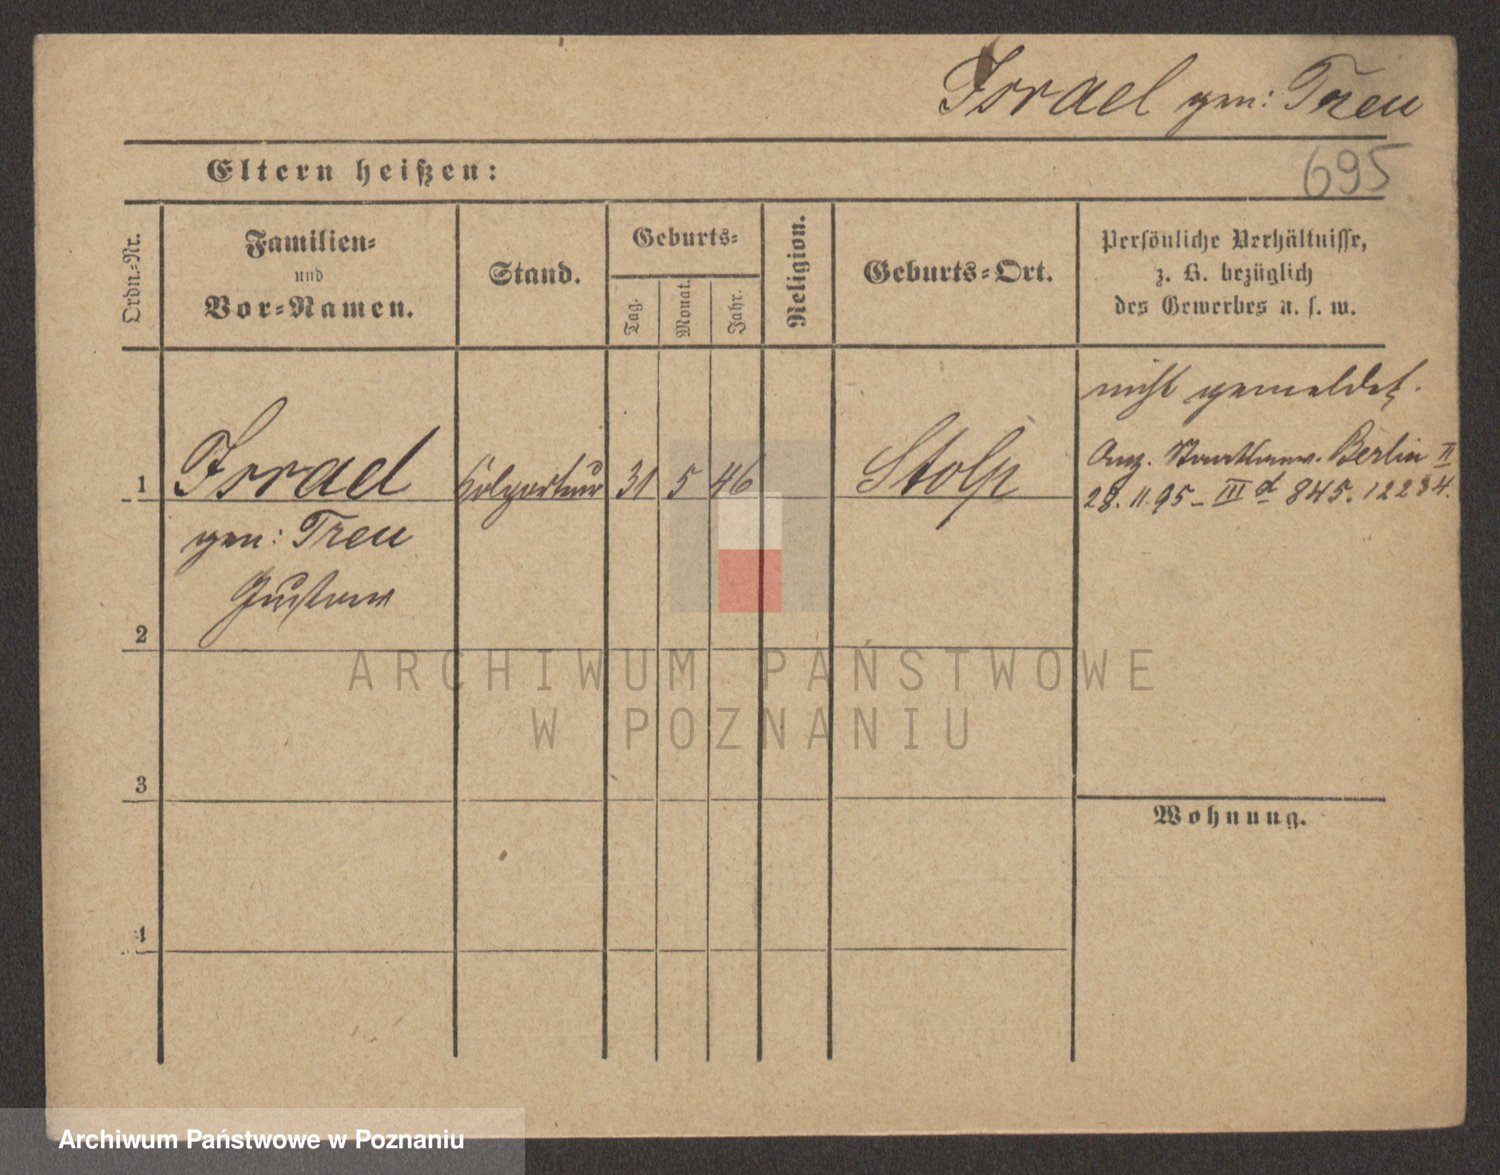 Israel gen: Treu
Eltern heißen:
695
Ordn.-Nr.
Familien-
und
Vor-Namen.
Stand.
Geburts-
Tag.
Monat.
Jahr.
Religion.
Geburts-Ort.
Persönliche Verhältnisse,
z. B. bezüglich
des Gewerbes u. s. w.
nicht gemeldet.
1 Israel Kolporteur 31 5 46 Stolp
Anz. Staatsanw. Berlin II
28. 11. 95 - III d 845. 12234.
gen: Treu
Gustav
2
ARCHIWUM PAŃSTWOWE
W POZNANIU
3
Wohnung.
4
Archiwum Państwowe w Poznaniu